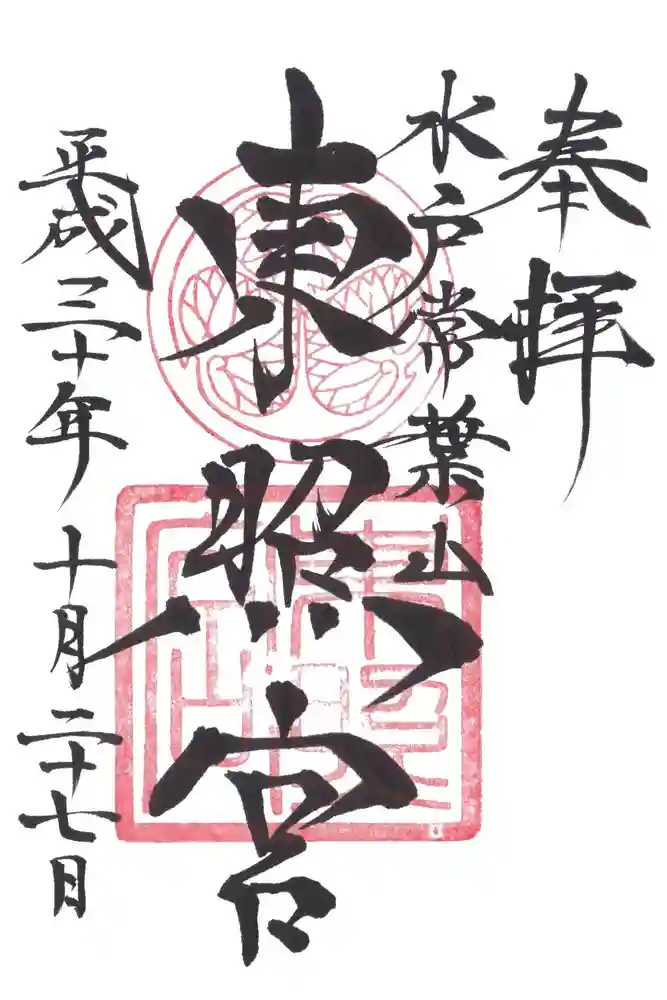 奉拝
水戸常葉山
東照宮
平成三十年 十月二十七日